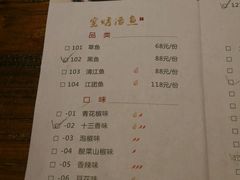 烤活鱼
品类
101 草鱼 68元/份
102 黑鱼 88元/份
103 清江鱼 88元/份
104 江团鱼 118元/份
口味
-01 青花椒味
-02 十三香味
-03 泡椒味
-04 酸菜山椒味
-05 香辣味
-06 蒜香味